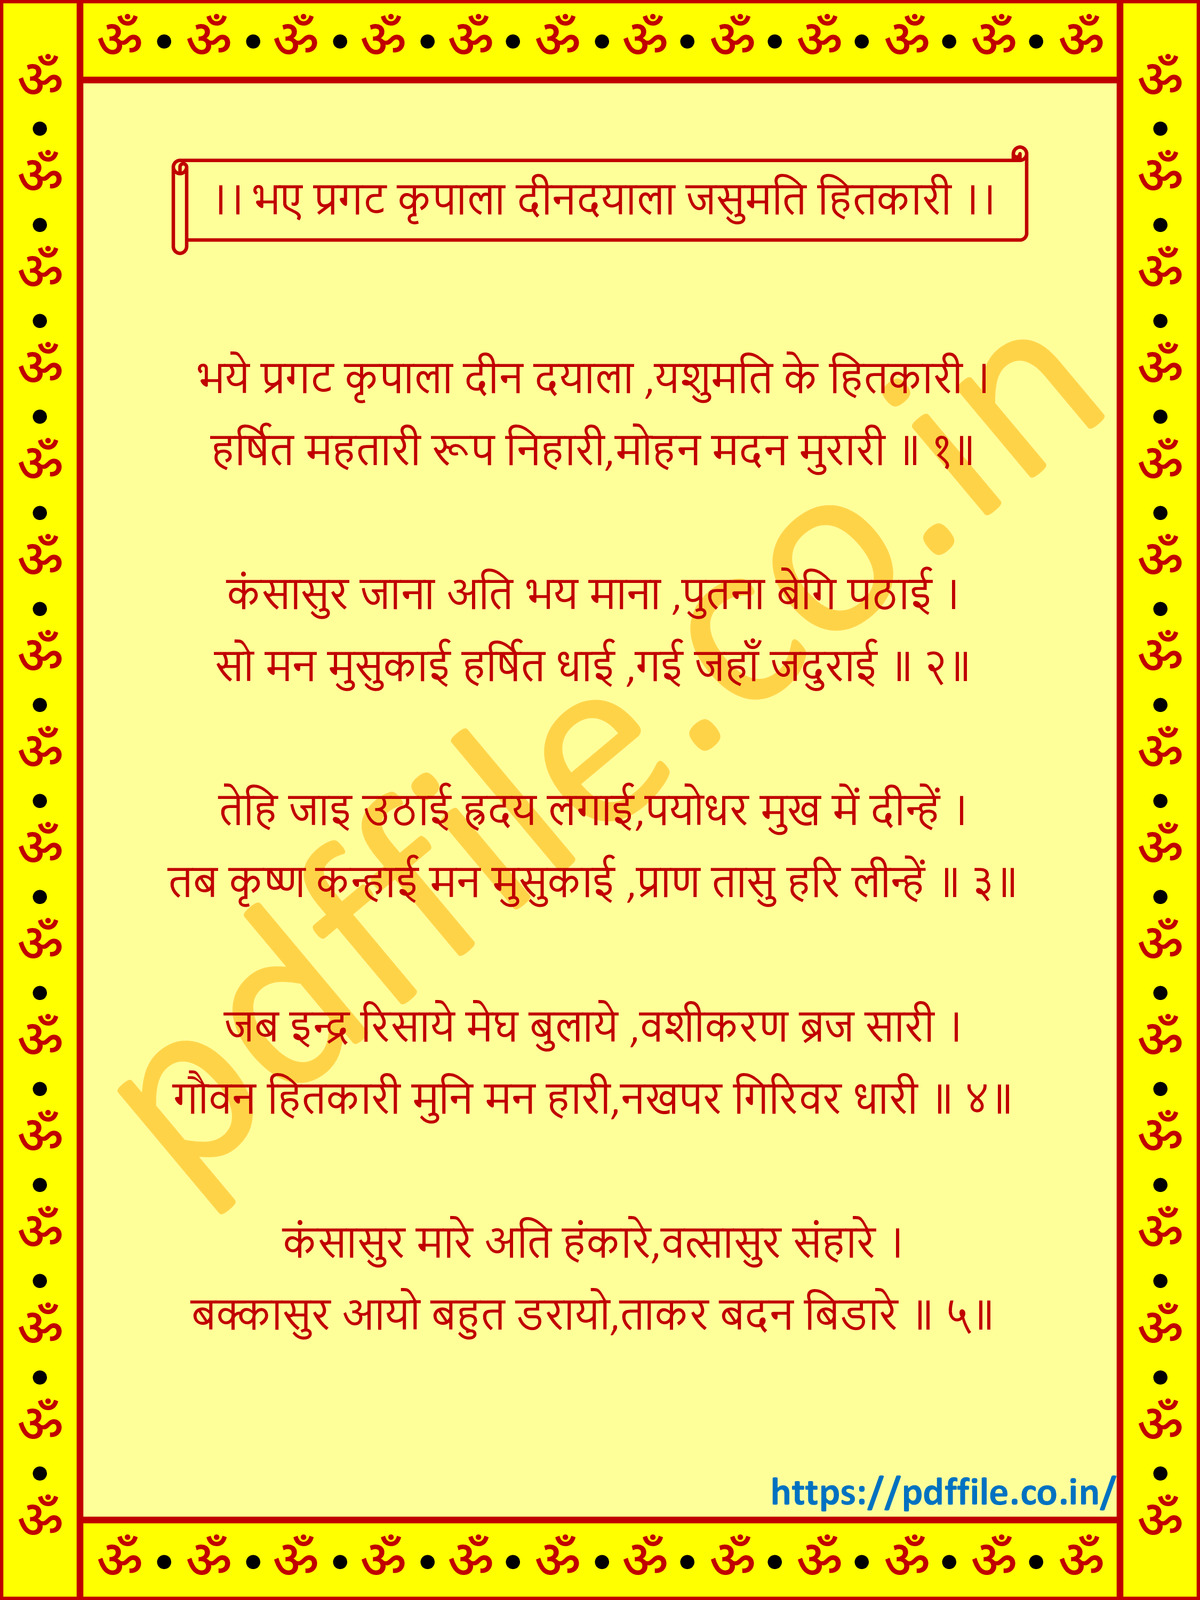 ॐ • ॐ • ॐ • ॐ • ॐ • ॐ • ॐ • ॐ • ॐ • ॐ • ॐ • ॐ
।। भए प्रगट कृपाला दीनदयाला जसुमति हितकारी ।।
भये प्रगट कृपाला दीन दयाला ,यशुमति के हितकारी ।
हर्षित महतारी रूप निहारी,मोहन मदन मुरारी ॥ १॥
कंसासुर जाना अति भय माना ,पुतना बेगि पठाई ।
सो मन मुसुकाई हर्षित धाई ,गई जहाँ जदुराई ॥ २॥
तेहि जाइ उठाई ह्रदय लगाई,पयोधर मुख में दीन्हें ।
तब कृष्ण कन्हाई मन मुसुकाई ,प्राण तासु हरि लीन्हें ॥ ३॥
जब इन्द्र रिसाये मेघ बुलाये ,वशीकरण ब्रज सारी ।
गौवन हितकारी मुनि मन हारी,नखपर गिरिवर धारी ॥ ४॥
कंसासुर मारे अति हंकारे,वत्सासुर संहारे ।
बक्कासुर आयो बहुत डरायो,ताकर बदन बिडारे ॥ ५॥
pdffile.co.in
https://pdffile.co.in/
ॐ • ॐ • ॐ • ॐ • ॐ • ॐ • ॐ • ॐ • ॐ • ॐ • ॐ • ॐ